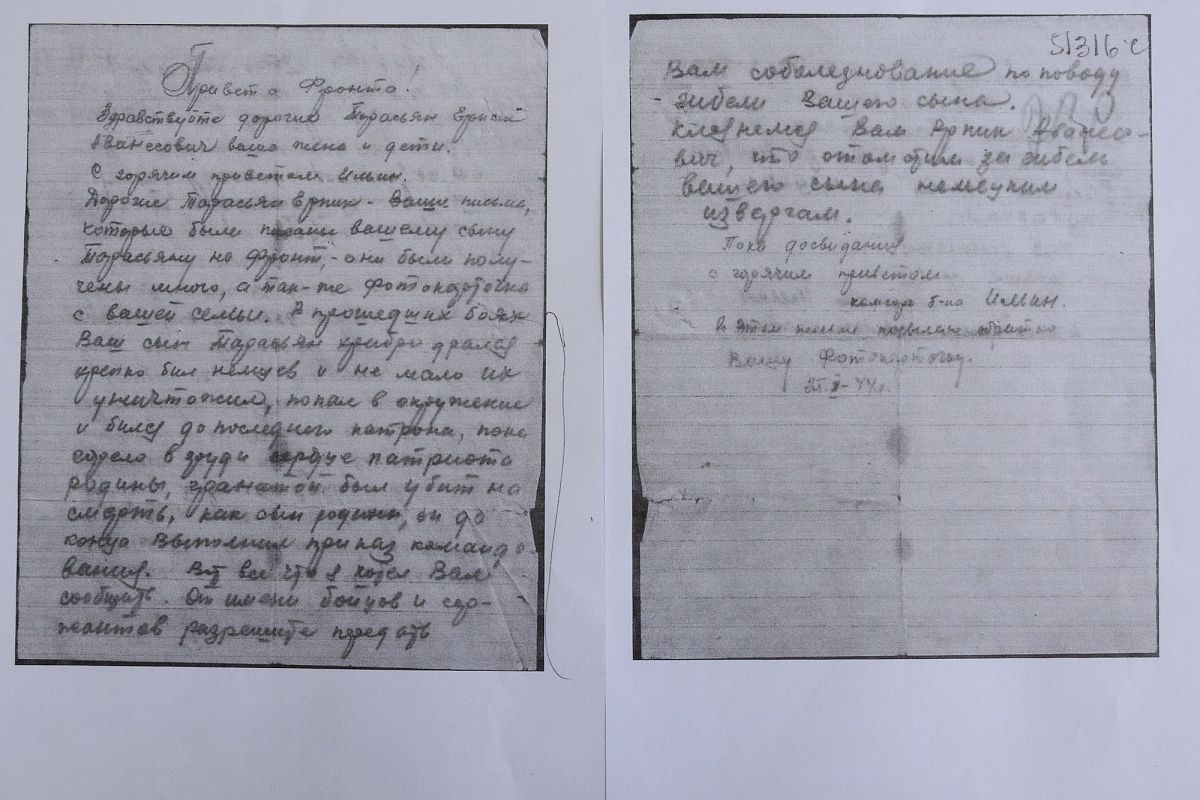 Привет с Фронта!
Здравствуйте дорогие Тарасьян
Ованесович ваша жена и дети.
С горячим приветом Ильин.
Дорогие Тарасьян Ерпик - Ваши письма,
которые были писаны вашему сыну
Тарасьяну на Фронт, - они были полу-
чены много, а так-же фотокарточка
с вашей семьи. В прошедших боях
Ваш сын Тарасьян храбро дрался
крепко бил немцев и не мало их
уничтожил, попал в окружение
и бился до последнего патрона, пока
в груди сердце патриота
родины, гранатой был убит на
смерть, как сын родины, он до
конца выполнил приказ командо-
вания. Вот все что я хотел Вам
сообщить. От имени бойцов и сер-
жантов разрешите передать
51316 с
Вам соболезнование по поводу
гибели Вашего сына.
Клянемся Вам Арпик Аванесо-
вич, что отомстим за гибель
вашего сына немецким
извергам.
Пока досвидания
с горячим приветом
комзвода б-на Ильин.
В этом письме посылаю обратно
Вашу Фотокарточку.
44г.